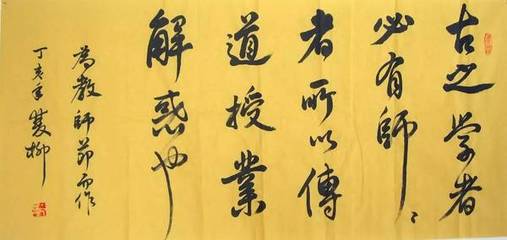 古之学者
必有師〻
者所以傳
道授業
解惑也
為教師節而作
丁亥年 柳